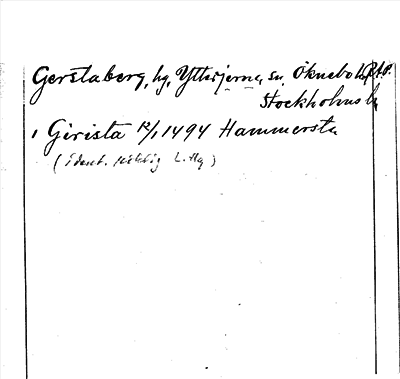 Gerstaberg, hg, Ytterjärna, sn, Öknebo hd
Stockholms l.
i Girista 12/1 1494 Hammersta
(ident. riktig L. Hg)